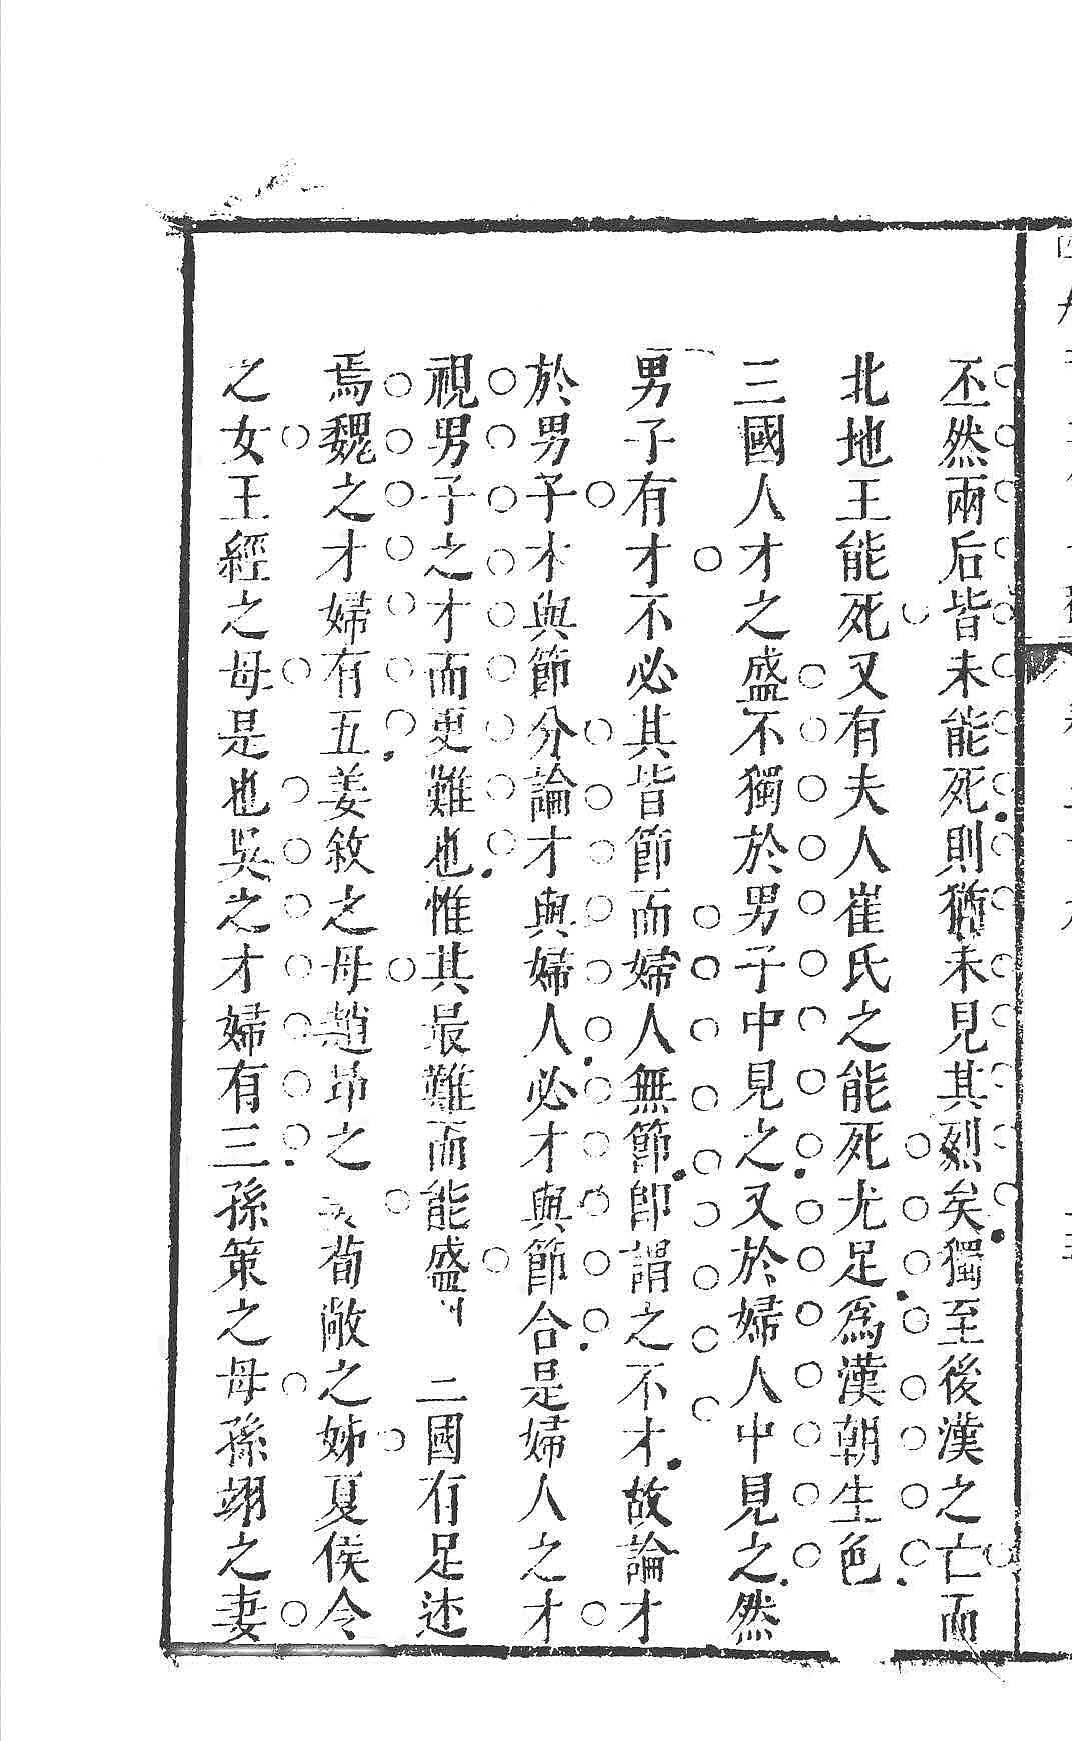 丕然兩后皆未能死則猶未見其烈矣獨至後漢之亡而
北地王能死又有夫人崔氏之能死尤足為漢朝生色
三國人才之盛不獨於男子中見之又於婦人中見之然
男子有才不必其皆節而婦人無節卽謂之不才故論才
於男子木與節分論才與婦人必才與節合是婦人之才
視男子之才而更難也惟其最難而能盛 二國有足述
焉魏之才婦有五姜敘之母趙昂之 荀敞之姊夏侯令
之女王經之母是也吳之才婦有三孫策之母孫翊之妻